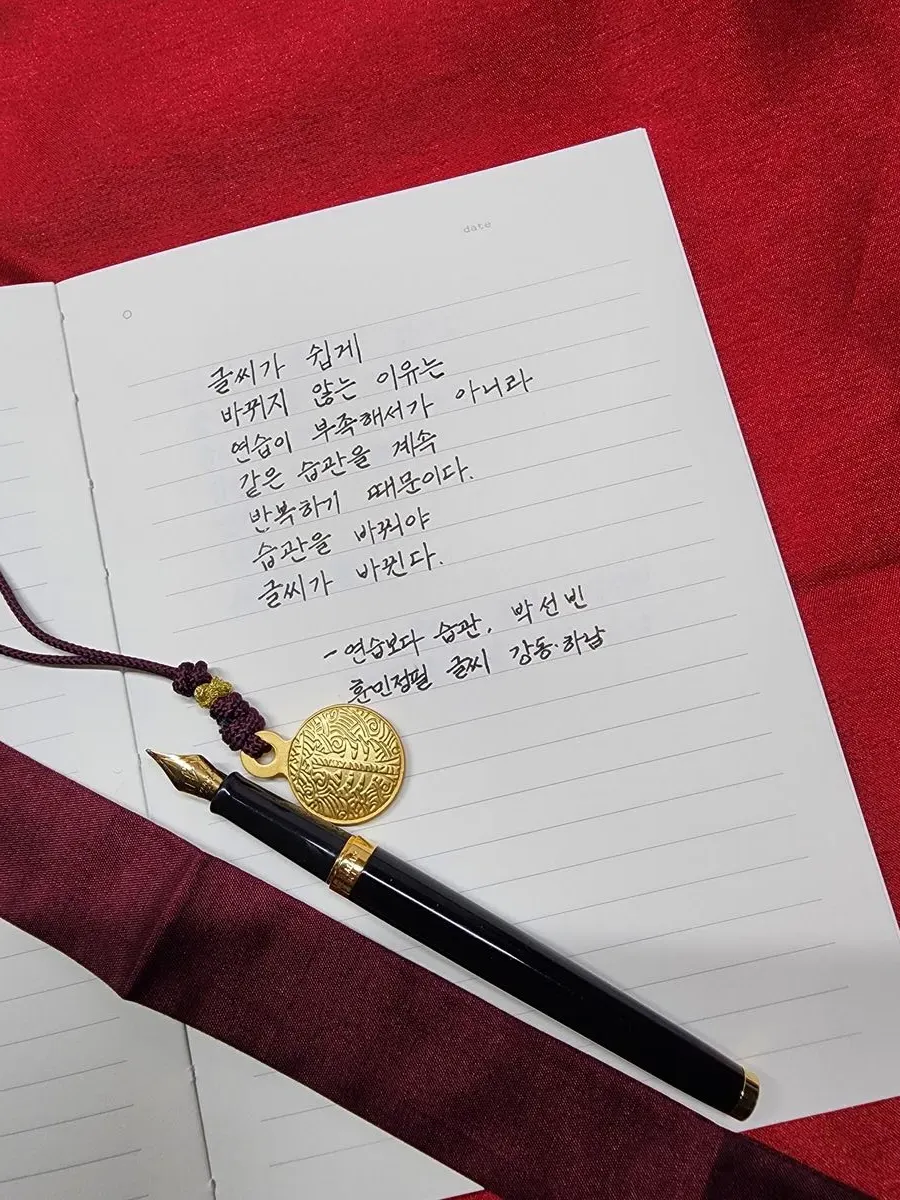 date
글씨가 쉽게
바뀌지 않는 이유는
연습이 부족해서가 아니라
같은 습관을 계속
반복하기 때문이다.
습관을 바꿔야
글씨가 바뀐다.
- 연습보다 습관, 박선빈
훈민정필 글씨 강동·하남